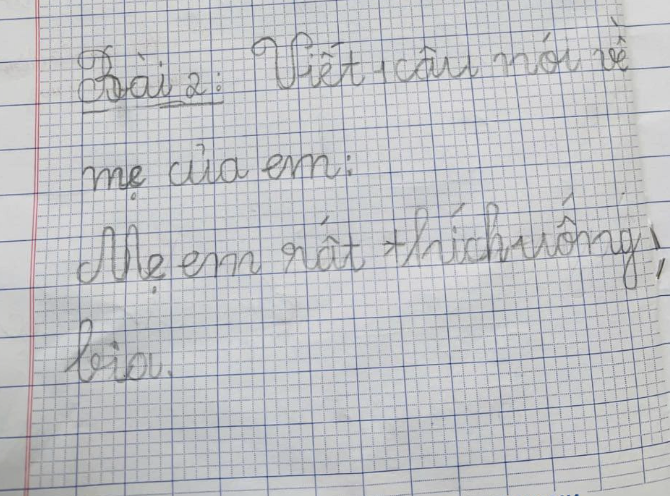 Bài 2: Viết 1 câu nói về
mẹ của em:
Mẹ em rất thích uống
bia.